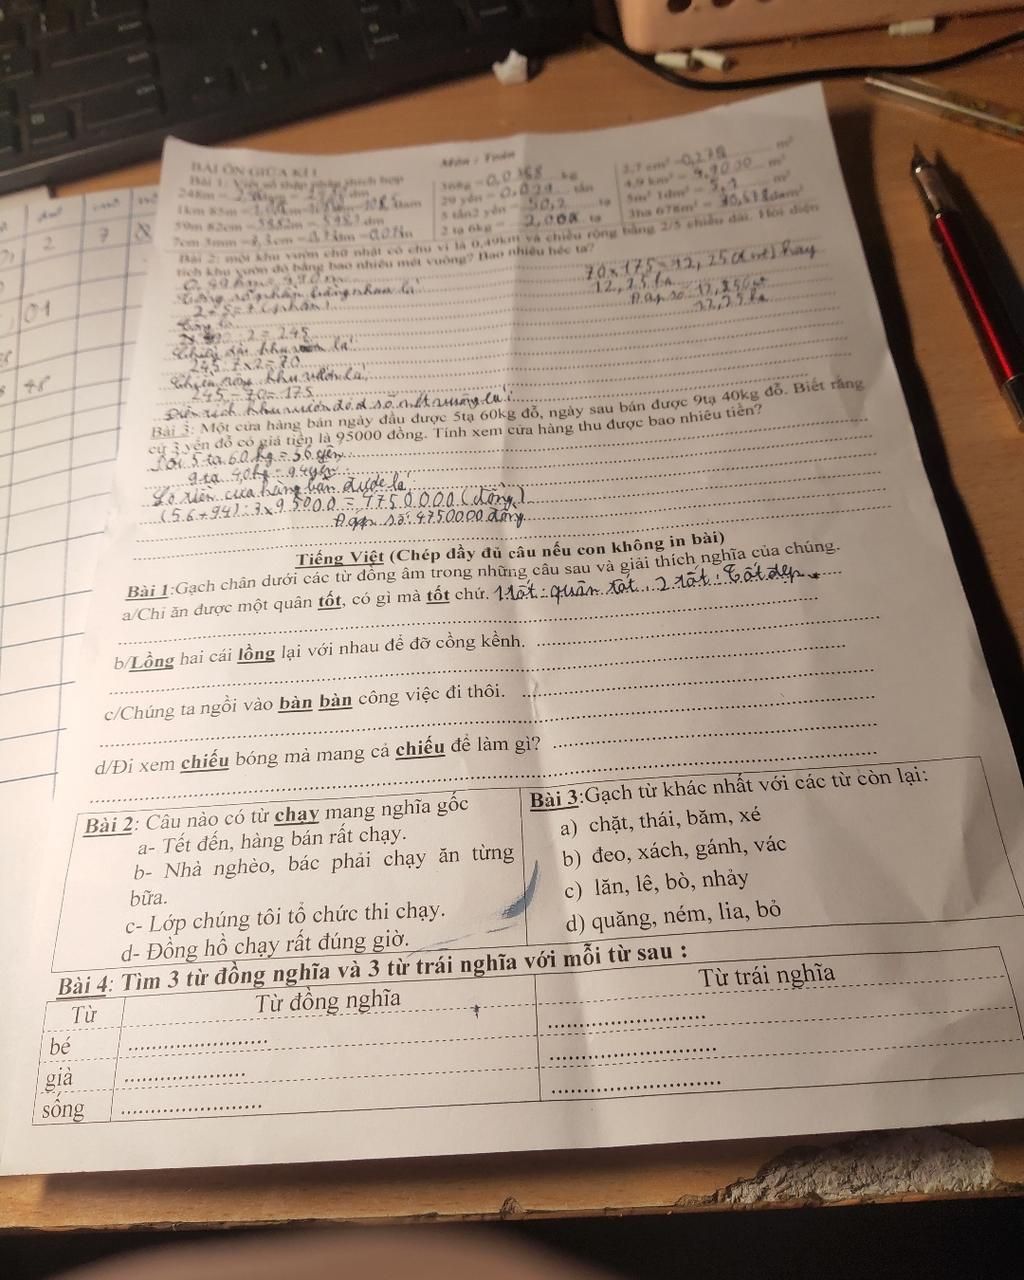 BÀI ÔN GIỮA KÌ I
Môn : Toán
Bài 1: Viết số thập phân thích hợp
248m =
1km 85m =
59m 82cm = 5982m = 598,2 dm
7cm 3mm = 7,3cm
368g = 0,0368 kg
29 yến = 0,029 tấn
5 tấn2 yến = 50,2 tạ
2 tạ 6kg = 2,006 tạ
2,7 cm² m²
4,9 km² = m²
5m² 1dm² = 5,1 m²
3ha 678m² = 30,678dam²
Bài 2: một khu vườn chữ nhật có chu vi là 0,49km và chiều rộng bằng 2/5 chiều dài. Hỏi diện
tích khu vườn đó bằng bao nhiêu mét vuông? Bao nhiêu héc ta?
0,49km = 490m
Tổng số phần bằng nhau là
2 + 5 = 7 (phần)
: 2 = 245
Chiều dài khu vườn là:
245 : 7 x 2 = 70
Chiều rộng khu vườn là:
245 - 70 = 175
Diện tích khu vườn đó d số mét vuông là:
70 x 175 = 12,25 (m²) hay
12,25 ha
Đáp số: 12,250m²
12,25 ha
Bài 3: Một cửa hàng bán ngày đầu được 5tạ 60kg đỗ, ngày sau bán được 9tạ 40kg đỗ. Biết rằng
cứ 3 yến đỗ có giá tiền là 95000 đồng. Tính xem cửa hàng thu được bao nhiêu tiền?
Đổi 5 tạ 60 kg = 56 yến
9 tạ 40kg = 94yến
Số tiền cửa hàng bán được là:
(56+94) : 3 x 95000 = 4750000 (đồng)
Đáp số: 4750000 đồng
Tiếng Việt (Chép đầy đủ câu nếu con không in bài)
Bài 1:Gạch chân dưới các từ đồng âm trong những câu sau và giải thích nghĩa của chúng.
a/Chỉ ăn được một quân tốt, có gì mà tốt chứ. 1 tốt : quân tốt. 2 tốt : tốt đẹp.
b/Lồng hai cái lồng lại với nhau để đỡ cồng kềnh.
c/Chúng ta ngồi vào bàn bàn công việc đi thôi.
d/Đi xem chiếu bóng mà mang cả chiếu để làm gì?
Bài 2: Câu nào có từ chạy mang nghĩa gốc
a- Tết đến, hàng bán rất chạy.
b- Nhà nghèo, bác phải chạy ăn từng
bữa.
c- Lớp chúng tôi tổ chức thi chạy.
d- Đồng hồ chạy rất đúng giờ.
Bài 3:Gạch từ khác nhất với các từ còn lại:
a) chặt, thái, băm, xé
b) đeo, xách, gánh, vác
c) lăn, lê, bò, nhảy
d) quăng, ném, lia, bỏ
Bài 4: Tìm 3 từ đồng nghĩa và 3 từ trái nghĩa với mỗi từ sau :
Từ Từ đồng nghĩa Từ trái nghĩa
bé
già
sống